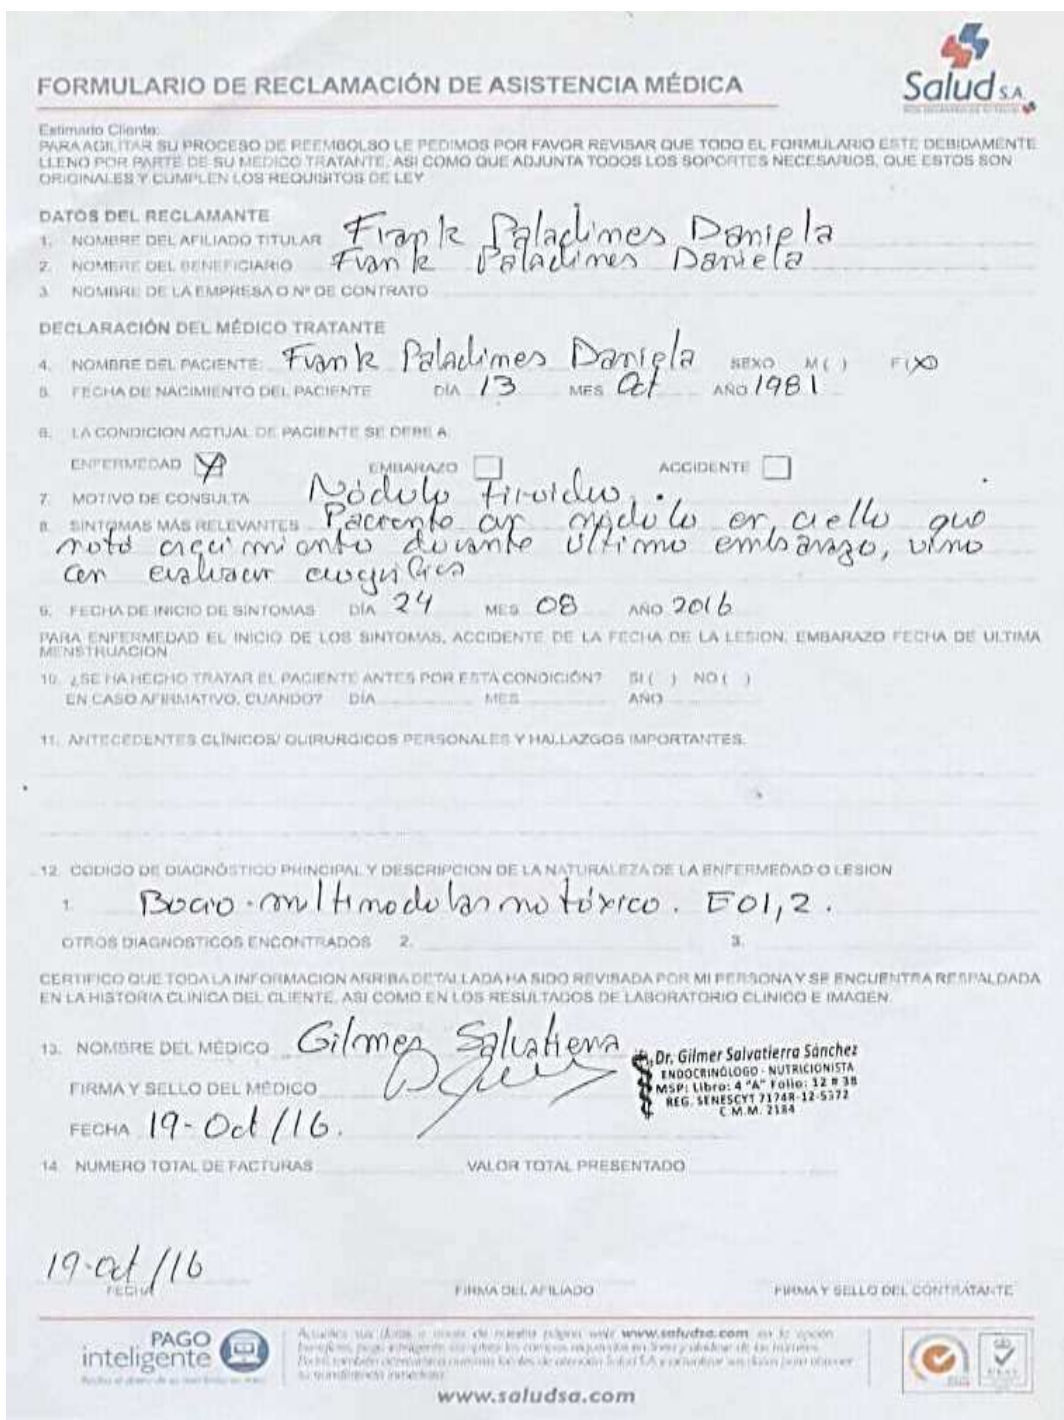 FORMULARIO DE RECLAMACIÓN DE ASISTENCIA MÉDICA
Salud S.A.
Estimado Cliente:
PARA AGILITAR SU PROCESO DE REEMBOLSO LE PEDIMOS POR FAVOR REVISAR QUE TODO EL FORMULARIO ESTE DEBIDAMENTE
LLENO POR PARTE DE SU MEDICO TRATANTE, ASI COMO QUE ADJUNTA TODOS LOS SOPORTES NECESARIOS, QUE ESTOS SON
ORIGINALES Y CUMPLEN LOS REQUISITOS DE LEY
DATOS DEL RECLAMANTE
1. NOMBRE DEL AFILIADO TITULAR Frank Paladimes Daniela
2. NOMBRE DEL BENEFICIARIO Frank Paladimes Daniela
3. NOMBRE DE LA EMPRESA O Nº DE CONTRATO
DECLARACIÓN DEL MÉDICO TRATANTE
4. NOMBRE DEL PACIENTE: Frank Paladimes Daniela SEXO M ( ) F (X)
5. FECHA DE NACIMIENTO DEL PACIENTE DÍA 13 MES Oct AÑO 1981
6. LA CONDICION ACTUAL DE PACIENTE SE DEBE A:
ENFERMEDAD EMBARAZO ACCIDENTE
7. MOTIVO DE CONSULTA Nódulo tiroideo.
8. SINTOMAS MÁS RELEVANTES Paciente con nodulo en cuello que
notó crecimiento durante último embarazo, vino
con
9. FECHA DE INICIO DE SINTOMAS DÍA 24 MES 08 AÑO 2016
PARA ENFERMEDAD EL INICIO DE LOS SINTOMAS, ACCIDENTE DE LA FECHA DE LA LESION, EMBARAZO FECHA DE ULTIMA
MENSTRUACION
10. ¿SE HA HECHO TRATAR EL PACIENTE ANTES POR ESTA CONDICIÓN? SI ( ) NO ( )
EN CASO AFIRMATIVO, CUANDO? DÍA MES AÑO
11. ANTECEDENTES CLÍNICOS/ QUIRURGICOS PERSONALES Y HALLAZGOS IMPORTANTES.
12. CODIGO DE DIAGNÓSTICO PRINCIPAL Y DESCRIPCION DE LA NATURALEZA DE LA ENFERMEDAD O LESION
1. Bocio multinodular no tóxico. E01,2.
OTROS DIAGNOSTICOS ENCONTRADOS 2. 3.
CERTIFICO QUE TODA LA INFORMACION ARRIBA DETALLADA HA SIDO REVISADA POR MI PERSONA Y SE ENCUENTRA RESPALDADA
EN LA HISTORIA CLINICA DEL CLIENTE, ASI COMO EN LOS RESULTADOS DE LABORATORIO CLINICO E IMAGEN.
13. NOMBRE DEL MÉDICO Gilmer Salvatierra
Dr. Gilmer Salvatierra Sánchez
ENDOCRINÓLOGO - NUTRICIONISTA
FIRMA Y SELLO DEL MÉDICO
MSP: Libro: 4 "A" Folio: 12 # 38
REG. SENESCYT 7174R-12-5372
C.M.M. 2184
FECHA 19-Oct/16.
14. NUMERO TOTAL DE FACTURAS VALOR TOTAL PRESENTADO
19-oct/16
FECHA FIRMA DEL AFILIADO FIRMA Y SELLO DEL CONTRATANTE
PAGO
inteligente
www.saludsa.com
www.saludsa.com